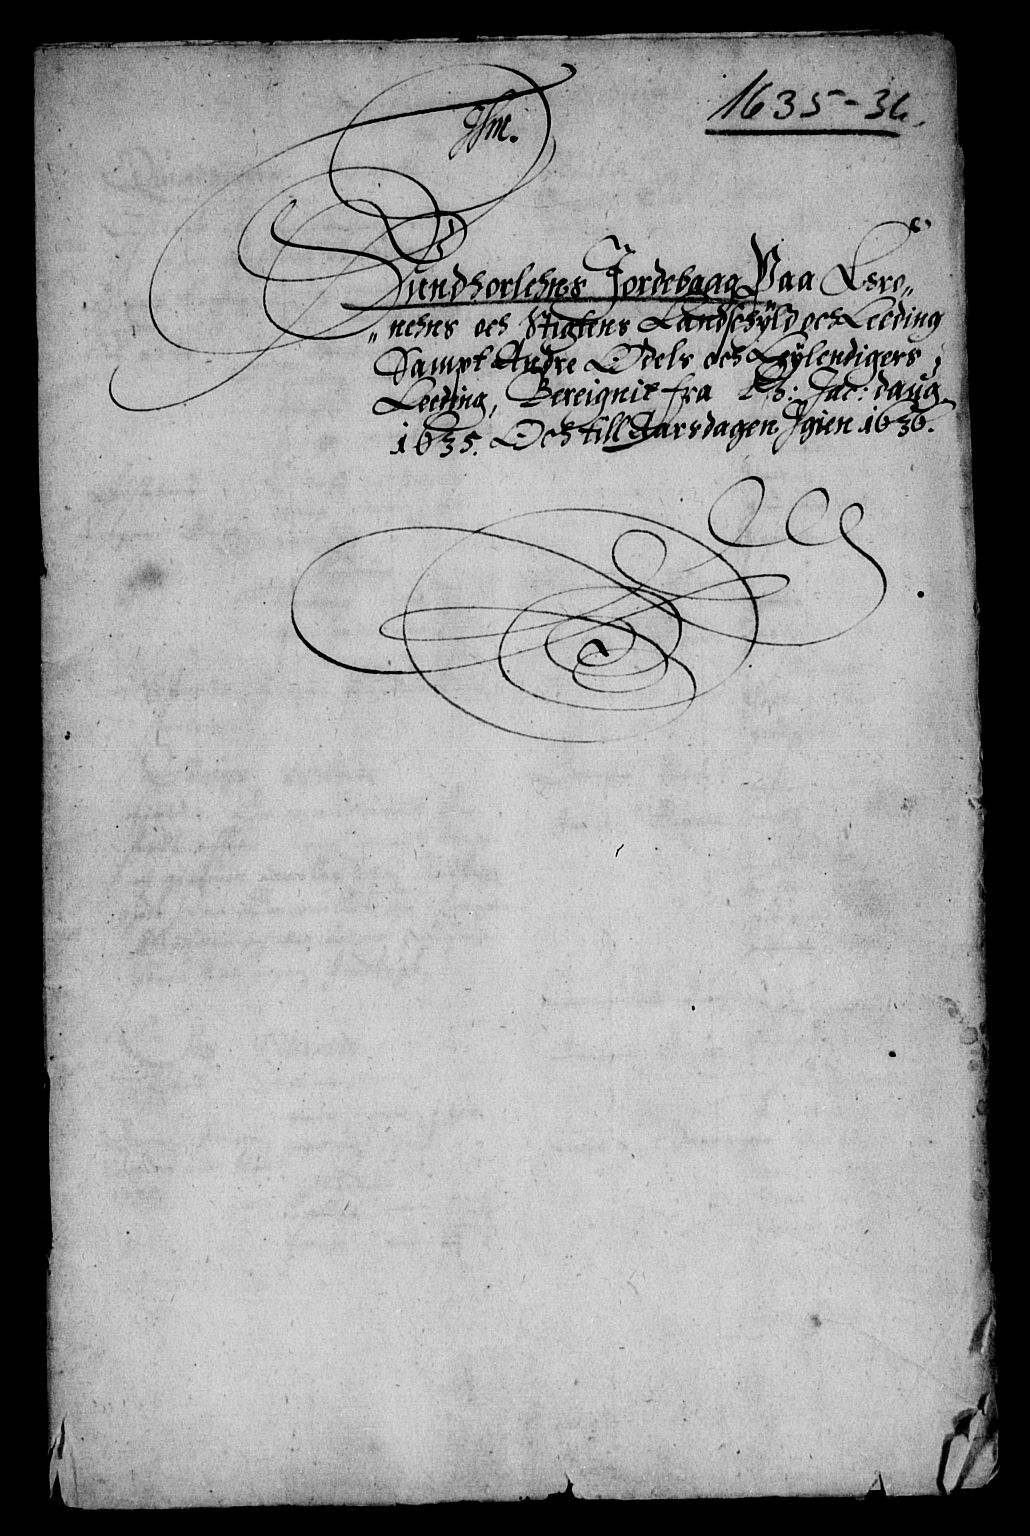 1635-36.
Sundhorlehns Jordebaag Paa Chro„
„nehns och Stigtens Landschyld och Leeding
Sampt Andre Odels och Gylendigers
Leeding, Bereignit fra Ph: Jac: daug
1635. Och till Aarsdagen Igien 1636.